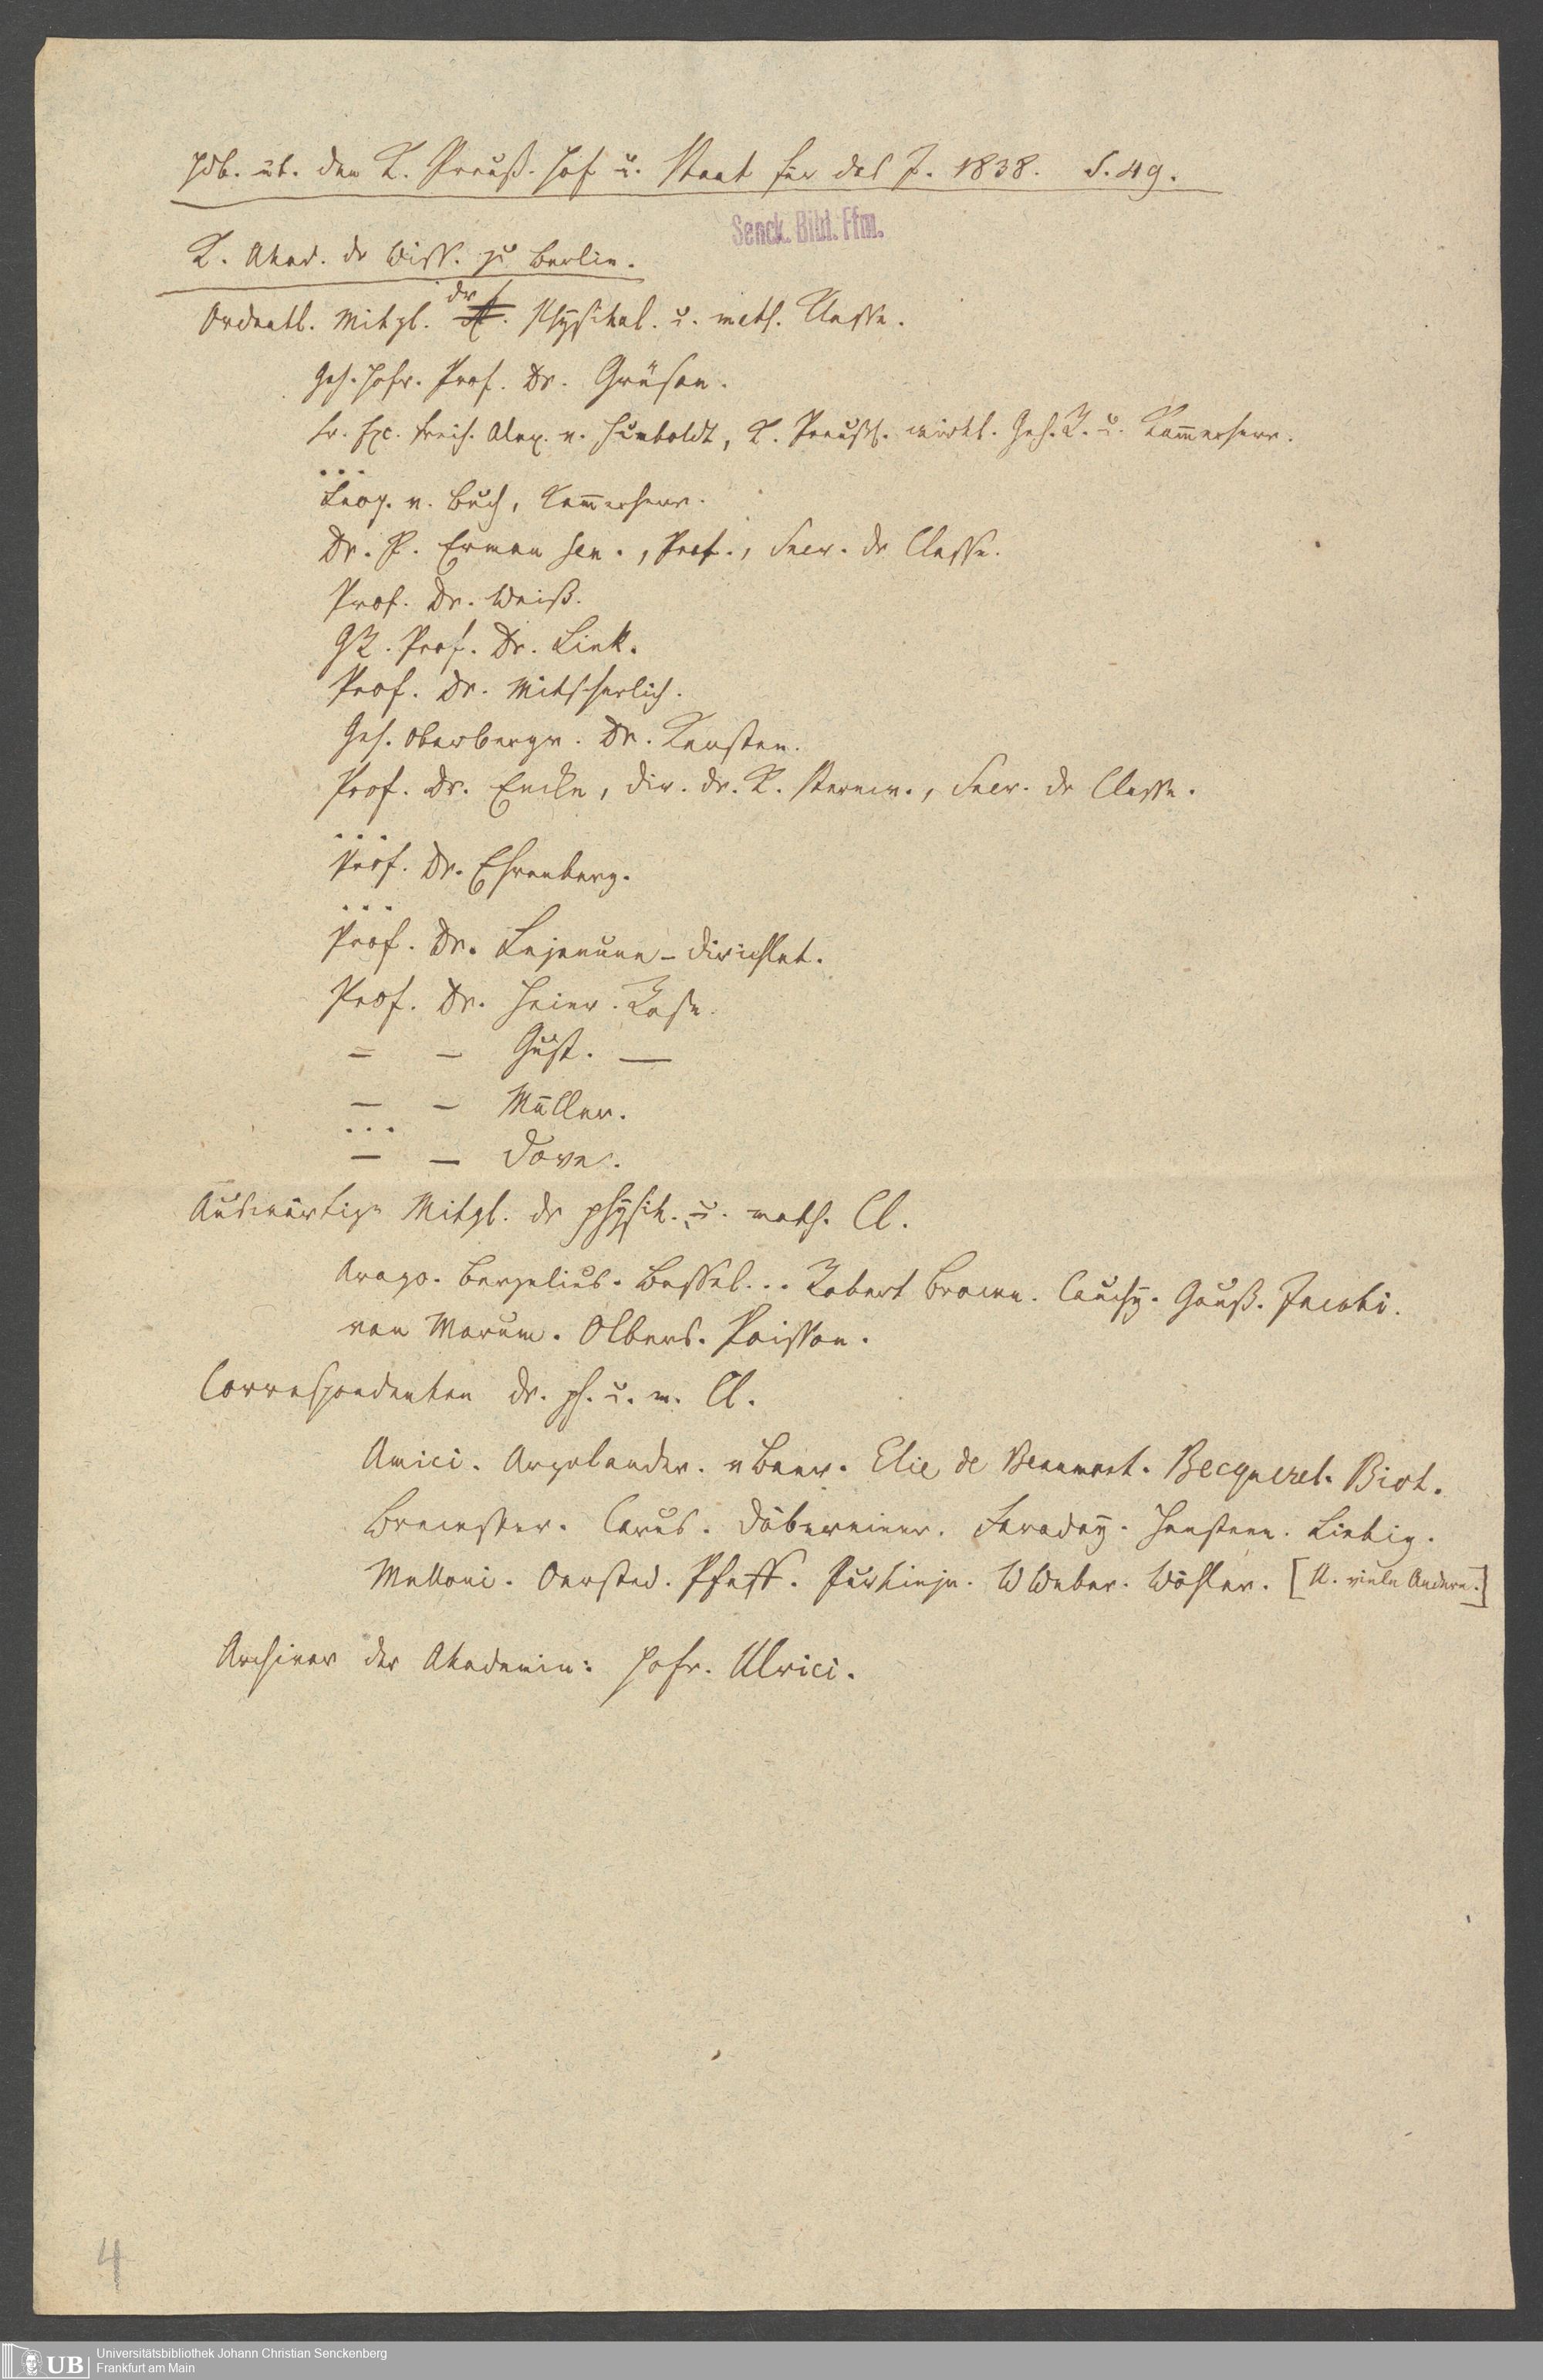 Hdb. üb. den K. Preuß. Hof u. Staat für das J. 1838. S. 49.
Senck. Bibl. Ffm.
K. Akad. dr Wiss. zu Berlin.
Ordentl. Mitgl. dr physikal. u. math. Klasse.
Geh. Hofr. Prof. Dr. Grüson.
Sr. Exc. Freih. Alex. v. Humboldt, K. Preuß. wirkl. Geh. R. u. Kammerherr.
...
Leop. v. Buch, Kammerherr.
Dr. P. Erman sen., Prof., Secr. dr Classe.
Prof. Dr. Weiß.
GR. Prof. Dr. Link.
Prof. Dr. Mitscherlich.
Geh. Oberbergr. Dr. Karsten.
Prof. Dr. Encke, Dir. dr. K. Sternw., Secr. dr Classe.
...
Prof. Dr. Ehrenberg.
...
Prof. Dr. Lejeune-Dirichlet.
Prof. Dr. Heinr. Rose.
– – Gust. —
– – Müller.
...
– – Dove.
Auswärtige Mitgl. dr physik. u. math. Cl.
Arago. Berzelius. Bessel... Robert Brown. Cauchy. Gauß. Jacobi.
van Marum. Olbers. Poisson.
Correspondenten dr. ph. u. m. Cl.
Amici. Argelander. v Baer. Elie de Beaumont. Becquerel. Biot.
Brewster. Carus. Döbereiner. Faraday. Hansteen. Liebig.
Melloni. Oersted. Pfaff. Purkinje. W Weber. Wöhler. [U. viele Andere.]
Archivar der Akademie: Hofr. Ulrici.
4
UB
Universitätsbibliothek Johann Christian Senckenberg
Frankfurt am Main